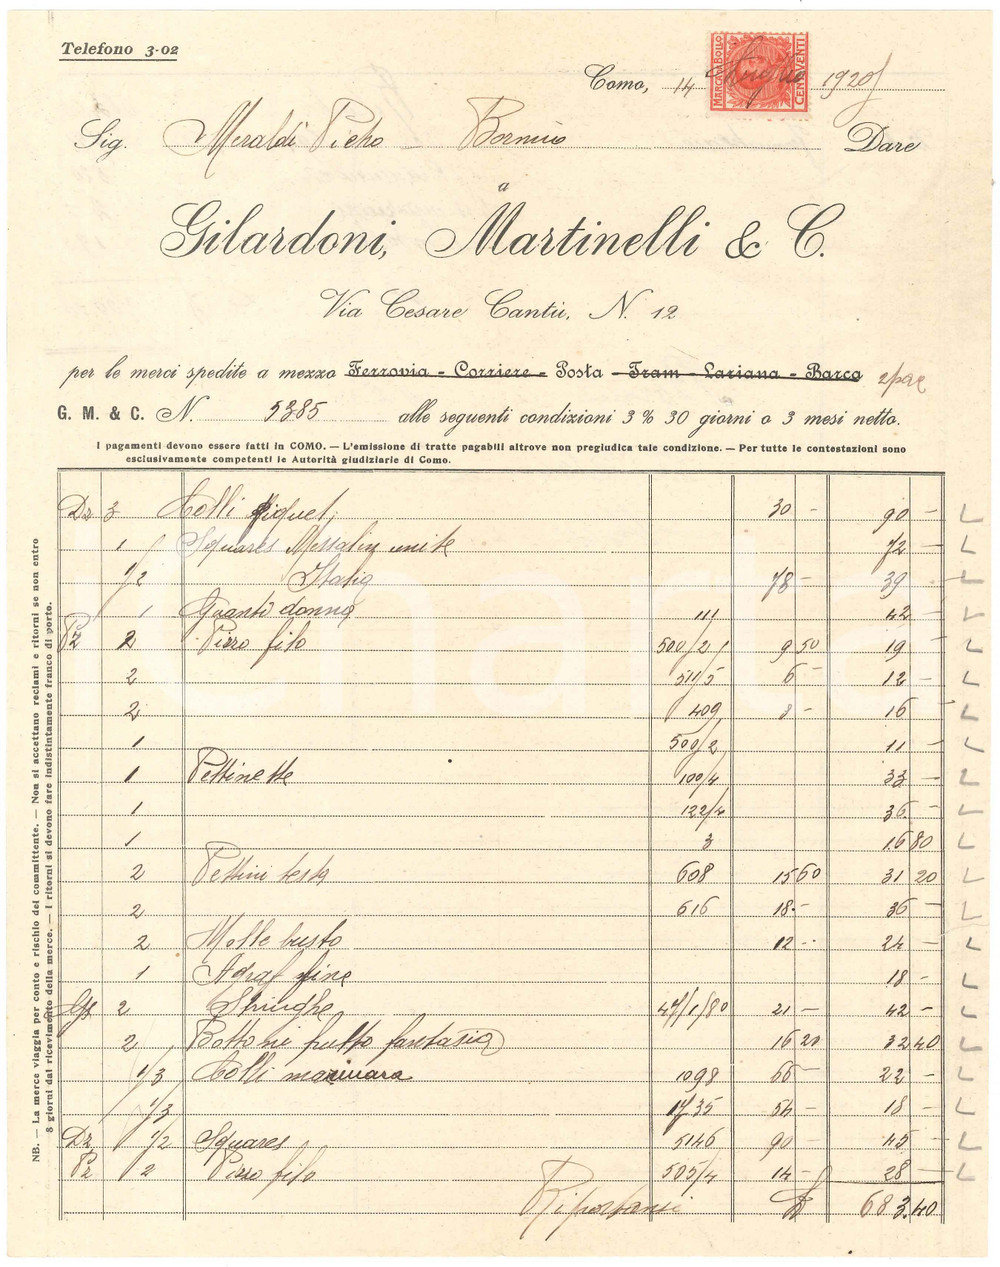 Telefono 3-02
MARCA DA BOLLO CENT. VENTI
Como, 14 Luglio 1920
Sig. Meraldi Pietro - Bormio Dare
a
Gilardoni, Martinelli & C.
Via Cesare Cantù, N. 12
per le merci spedite a mezzo Ferrovia - Corriere - Posta - Tram - Lariana - Barca
G. M. & C. N. 5385 alle seguenti condizioni 3 % 30 giorni o 3 mesi netto.
I pagamenti devono essere fatti in COMO. — L'emissione di tratte pagabili altrove non pregiudica tale condizione. — Per tutte le contestazioni sono
esclusivamente competenti le Autorità giudiziarie di Como.
Dz 3 Colli piquet 30 - 90 -
1 Squares Messalin unite 72 -
1/2 Italia 78 - 39 -
1 Guanti donna 111 42 -
Pz 2 Pizzo filo 500/2 9 50 19 -
2 511/5 6 - 12 -
2 409 8 - 16 -
1 500/2 11 -
1 Pettinette 100/4 33 -
1 122/4 36 -
1 3 16 80
2 Pettini testa 608 15 60 31 20
2 616 18 - 36 -
2 Molle busto 12 - 24 -
1 Agraf fine 18 -
Gs 2 Stringhe 47/1/80 21 - 42 -
2 Bottoni frutto fantasia 16 20 32 40
1/3 Colli marinara 1098 66 - 22 -
1/3 1735 54 - 18 -
Dz 1/2 Squares 5146 90 - 45 -
Pz 2 Pizzo filo 505/4 14 - 28 -
Riportansi £ 683.40
NB. — La merce viaggia per conto e rischio del committente. — Non si accettano reclami e ritorni se non entro
8 giorni dal ricevimento della merce. — I ritorni si devono fare indistintamente franco di porto.